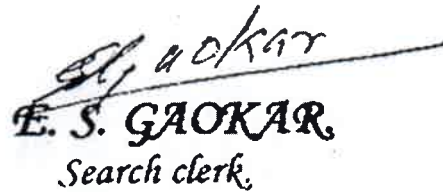 ESGaokar
E. S. GAOKAR,
Search clerk,